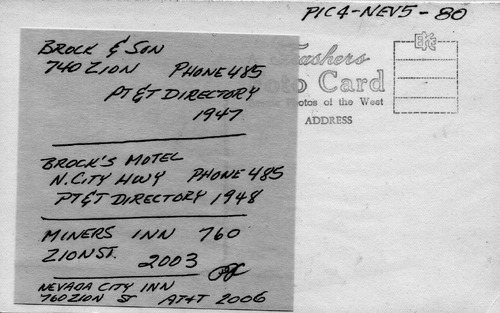 PIC4-NEV5-80
BROCK & SON
740 ZION PHONE 485
PT&T DIRECTORY
1947
BROCK'S MOTEL
N. CITY HWY PHONE 485
PT&T DIRECTORY 1948
MINERS INN 760
ZION ST. 2003
NEVADA CITY INN
760 ZION ST AT&T 2006
Frashers
oto Card
hotos of the West
ADDRESS
EKC